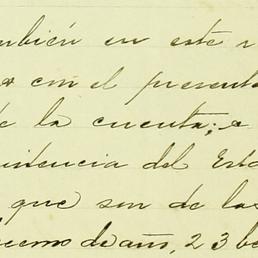 también en este
con el present
de la cuenta; a
istencia del Esta
que son de las
ierno de año, 23 be